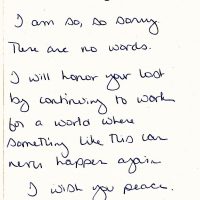 I am so, so sorry
There are no words.
I will honor your lost
by continuing to work
for a world where
something like this can
never happen again
I wish you peace.